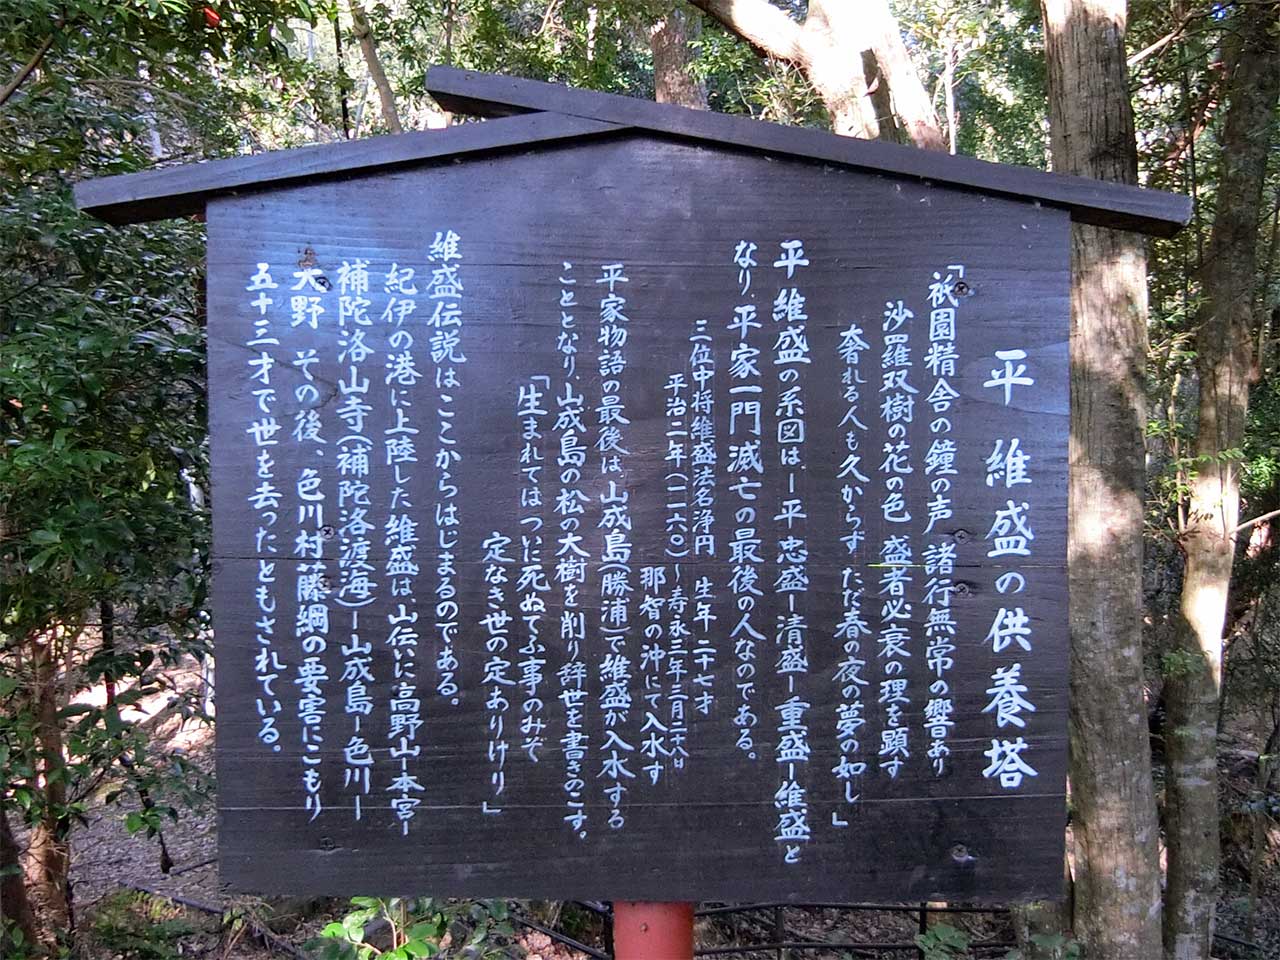 平 維盛の供養塔
「祇園精舎の鐘の声 諸行無常の響あり
沙羅双樹の花の色 盛者必衰の理を顕す
奢れる人も久からず ただ春の夜の夢の如し」
平 維盛の系図は、ー平 忠盛ー清盛ー重盛ー維盛と
なり、平家一門滅亡の最後の人なのである。
三位中将維盛法名浄円 生年 二十七才
平治二年(一一六〇)〜寿永三年三月二十八日
那智の沖にて入水す
平家物語の最後は、山成島(勝浦)で維盛が入水する
こととなり、山成島の松の大樹を削り辞世を書きのこす。
「生まれてはついに死ぬてふ事のみぞ
定なき世の定ありけり」
維盛伝説はここからはじまるのである。
紀伊の港に上陸した維盛は、山伝に高野山ー本宮ー
補陀洛山寺(補陀洛渡海)ー山成島ー色川ー
大野 その後、色川村藤綱の要害にこもり
五十三才で世を去ったともされている。